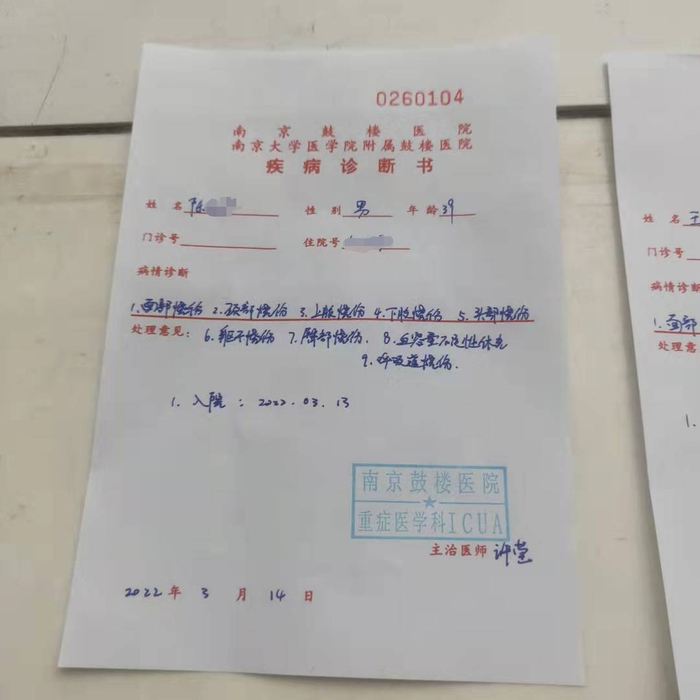 0260104
南京鼓楼医院
南京大学医学院附属鼓楼医院
疾病诊断书
姓名 陈 性别 男 年龄 39
门诊号 住院号
病情诊断
1.面部烧伤 2.颈部烧伤 3.上肢烧伤 4.下肢烧伤 5.头部烧伤
处理意见: 6.躯干烧伤 7.臀部烧伤. 8.血容量不足性休克
9.呼吸道烧伤.
1. 入院: 2022.03.13
南京鼓楼医院
重症医学科ICUA
主治医师 许莹
2022年3月14日
姓名 王
门诊号
病情诊
1.面部
处理意
1.